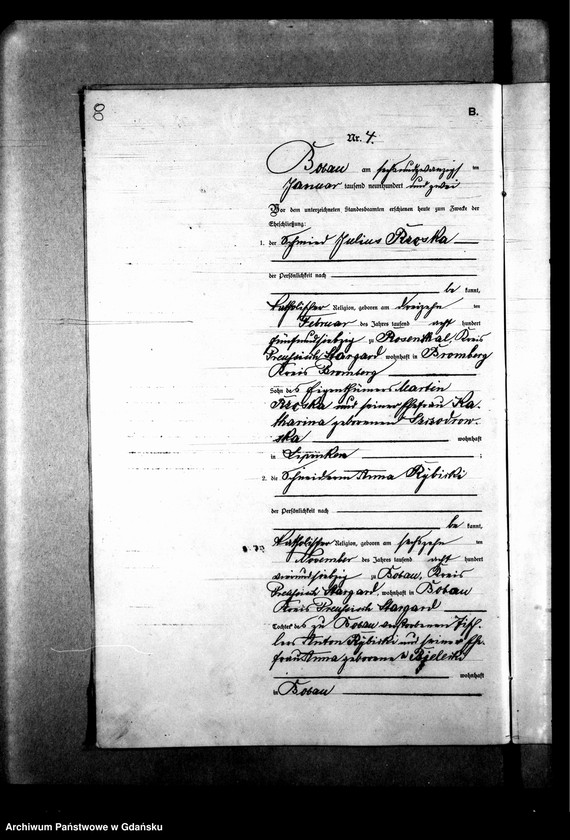 8
B.
Nr. 4.
Bobau am sechsundzwanzigsten
Januar tausend neunhundert und zwei
Vor dem unterzeichneten Standesbeamten erschienen heute zum Zwecke der
Eheschließung:
1. der Schmied Julius Rzoska
der Persönlichkeit nach
be kannt,
katholischer Religion, geboren am dreizehn ten
Februar des Jahres tausend acht hundert
fünfundsiebzig zu Rosenthal, Kreis
Preussisch Stargard wohnhaft in Bromberg
Kreis Bromberg
Sohn des Eigenthümers Martin
Rzoska und seiner Ehefrau Ka-
tharina geborenen
ska wohnhaft
in ;
2. die Schneiderin Anna Rybicki
der Persönlichkeit nach
be kannt,
katholischer Religion, geboren am sechzehn ten
November des Jahres tausend acht hundert
vierundsiebzig zu Bobau, Kreis
Preussisch Stargard, wohnhaft in Bobau
Kreis Preussisch Stargard
Tochter des zu Bobau verstorbenen Tisch-
lers Anton Rybicki und seiner Ehe-
frau Anna geborene
wohnhaft
in Bobau
Archiwum Państwowe w Gdańsku